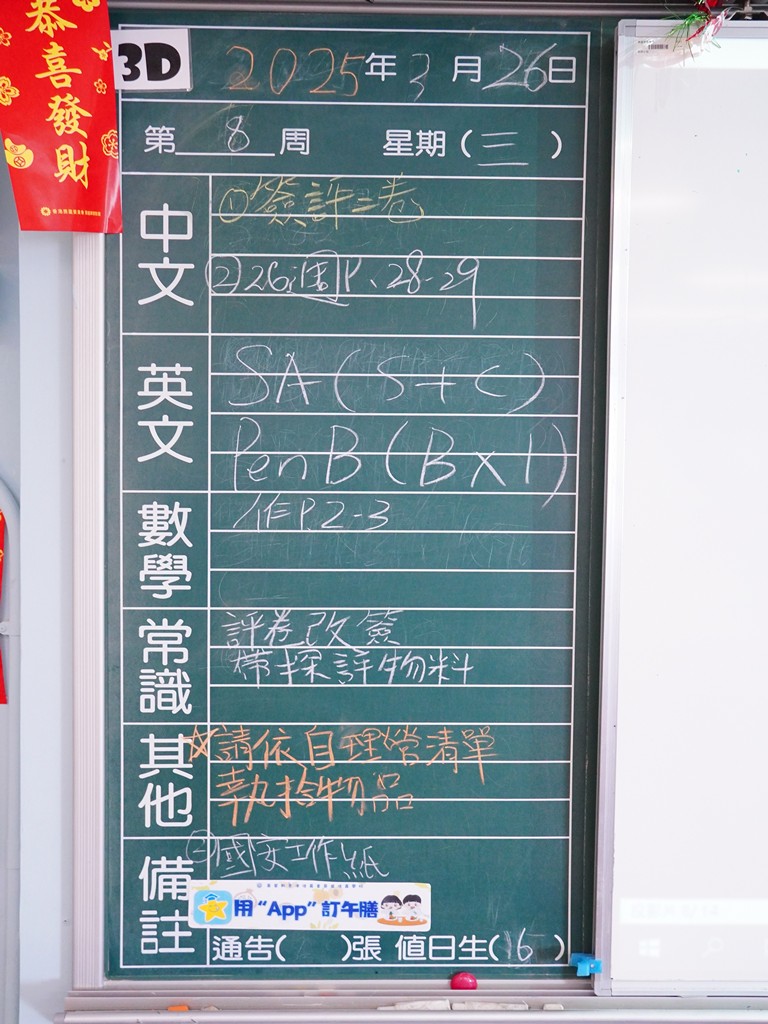 恭喜發財
3D
2025年3月26日
第8周 星期(三)
中文
①簽評二卷
②26週P.28-29
英文
SA(S+C)
PenB(Bx1)
數學
作P.2-3
常識
評卷改簽
帶探評物料
其他
☆請依自理營清單
執拾物品
備註
國安工作紙
用“App”訂午膳
通告( )張 值日生(6)